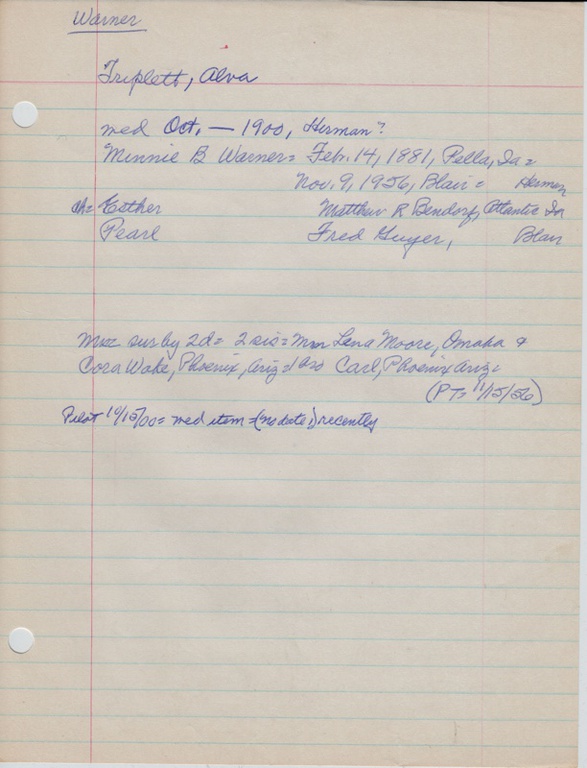 Warner
Triplett, Alva
med Oct. — 1900, Herman?
Minnie B Warner = Feb. 14, 1881, Pella, Ia =
Nov. 9, 1956, Blair = Herman
ch = Esther Matthew R Bendorf, Atlantic Ia
Pearl Fred Guyer, Blair
sur by 2d = 2 sis = Mrs Lena Moore, Omaha &
Cora Wake, Phoenix, Ariz = 1 bro Carl, Phoenix Ariz =
(PT = 11/15/56)
Pilot 10/15/00 = med item = (no date) recently